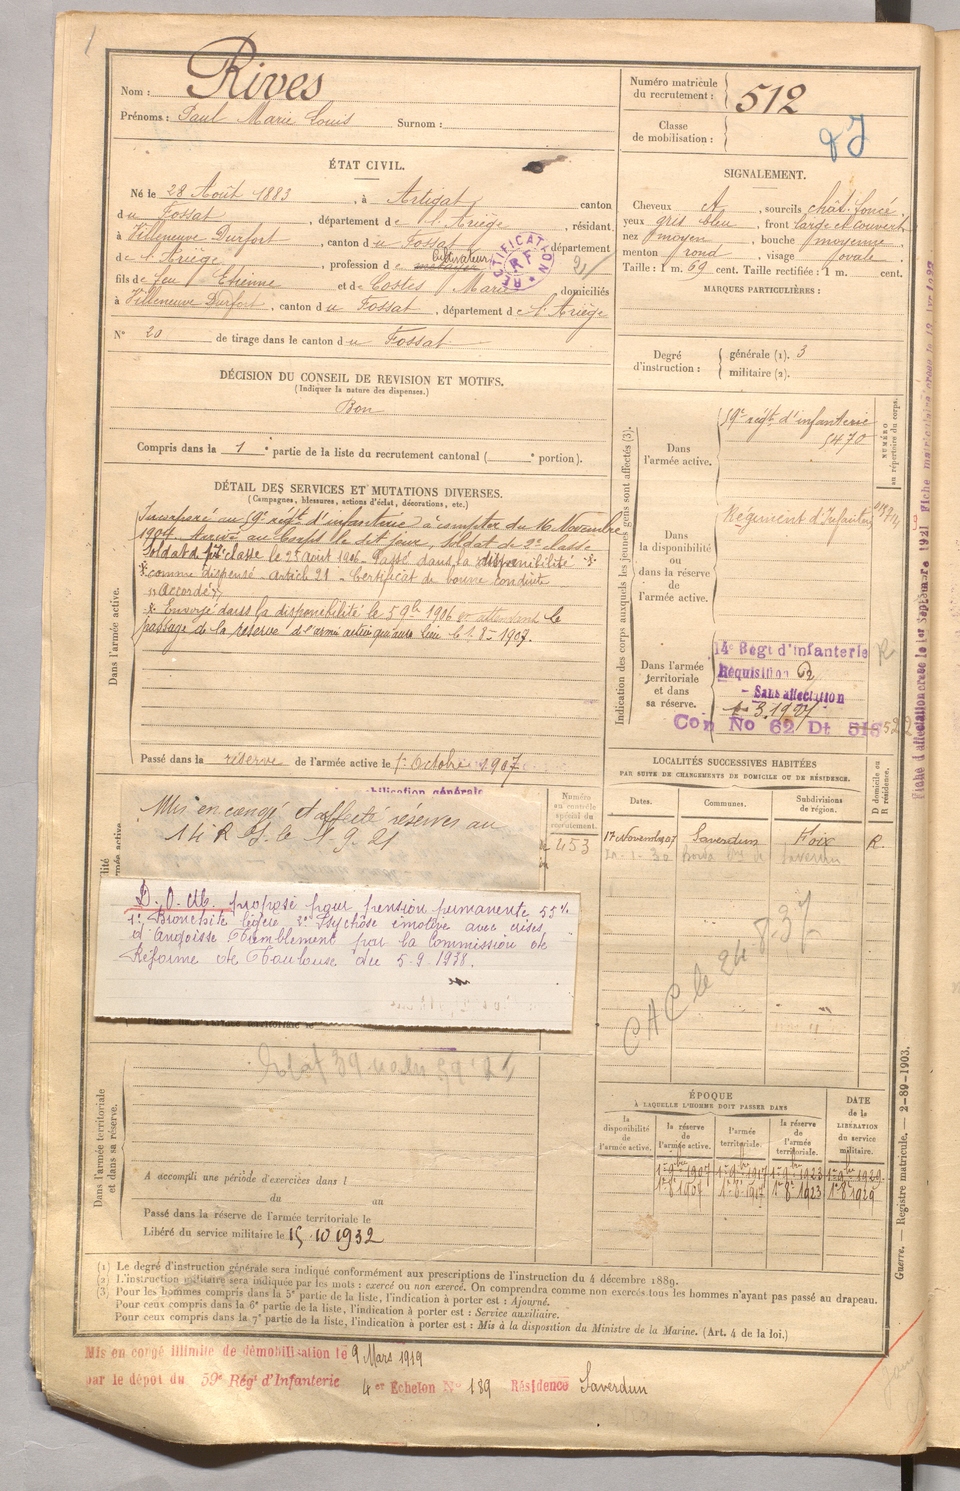 Nom : Rives
Prénoms : Paul Marie Louis Surnom :
Numéro matricule du recrutement : 512
Classe de mobilisation :
ÉTAT CIVIL.
Né le 28 Août 1883, à Artigat, canton
du Fossat, département de l'Ariège, résidant
à Villeneuve Durfort, canton du Fossat, département
de l'Ariège, profession de cultivateur
RECTIFICATION RF
21
fils de feu Etienne et de Costes Marie, domiciliés
à Villeneuve Durfort, canton du Fossat, département de l'Ariège
N° 20 de tirage dans le canton du Fossat
SIGNALEMENT.
Cheveux, sourcils chât. foncé
yeux gris bleu, front large et couvert
nez moyen, bouche moyenne
menton rond, visage ovale
Taille : 1 m. 69 cent. Taille rectifiée : 1 m. cent.
MARQUES PARTICULIÈRES :
Degré d'instruction : générale (1). 3
militaire (2).
DÉCISION DU CONSEIL DE REVISION ET MOTIFS.
(Indiquer la nature des dispenses.)
Bon
Compris dans la 1e partie de la liste du recrutement cantonal ( e portion).
DÉTAIL DES SERVICES ET MUTATIONS DIVERSES.
(Campagnes, blessures, actions d'éclat, décorations, etc.)
Dans l'armée active.
Incorporé au 59e régt d'infanterie à compter du 16 Novembre
1904. Arrivé au Corps le dit jour, Soldat de 2e classe
Soldat de 1ère classe le 25 Août 1906. Passé dans la disponibilité
comme dispensé article 21 - Certificat de bonne conduite
accordé
Envoyé dans la disponibilité le 5 9bre 1906 en attendant le
passage de la réserve de l'armée active qui aura lieu le 1-8-1907.
Passé dans la réserve de l'armée active le 1er Octobre 1907
Indication des corps auxquels les jeunes gens sont affectés (3).
NUMÉRO au répertoire du corps.
Dans l'armée active.
59e régt d'infanterie
5470
Dans la disponibilité ou dans la réserve de l'armée active.
Régiment d'Infanterie
Dans l'armée territoriale et dans sa réserve.
14e Régt d'infanterie
Réquisition
Sans affectation
3.1927
Con No 62 Dt 518
522
Fiche d'affectation créée le 1er Septembre 1921
LOCALITÉS SUCCESSIVES HABITÉES
PAR SUITE DE CHANGEMENTS DE DOMICILE OU DE RÉSIDENCE.
Dates. Communes. Subdivisions de région. D domicile ou R résidence.
17 Novembre 07 Saverdun Foix R.
Numéro au contrôle spécial du recrutement.
453
Mis en congé et affecté réserves au
14 R I. le 1 9. 21
D. O. M. proposé pour pension permanente 55%
1° Bronchite légère 2° Psychose émotive avec crises
d'Angoisse Tremblement par la Commission de
Réforme de Toulouse du 5-9-1938.
CAC le 24 8 37
Dans l'armée territoriale et dans sa réserve.
A accompli une période d'exercices dans l
du au
Passé dans la réserve de l'armée territoriale le
Libéré du service militaire le 15.10 1932
ÉPOQUE
À LAQUELLE L'HOMME DOIT PASSER DANS
la disponibilité de l'armée active. la réserve de l'armée active. l'armée territoriale. la réserve de l'armée territoriale. DATE de la LIBÉRATION du service militaire.
1er 9bre 1907 1er 9bre 1917 1er 9bre 1923 1er 9bre 1929
1er 8 1907 1er 8 1917 1er 8 1923 1er 8 1929
Guerre. — Registre matricule. — 2-89-1903.
(1) Le degré d'instruction générale sera indiqué conformément aux prescriptions de l'instruction du 4 décembre 1889.
(2) L'instruction militaire sera indiquée par les mots : exercé ou non exercé. On comprendra comme non exercés tous les hommes n'ayant pas passé au drapeau.
(3) Pour les hommes compris dans la 5e partie de la liste, l'indication à porter est : Ajourné.
Pour ceux compris dans la 6e partie de la liste, l'indication à porter est : Service auxiliaire.
Pour ceux compris dans la 7e partie de la liste, l'indication à porter est : Mis à la disposition du Ministre de la Marine. (Art. 4 de la loi.)
Mis en congé illimité de démobilisation le 9 Mars 1919
par le dépôt du 59e Régt d'Infanterie 4e Echelon N° 189 Résidence Saverdun